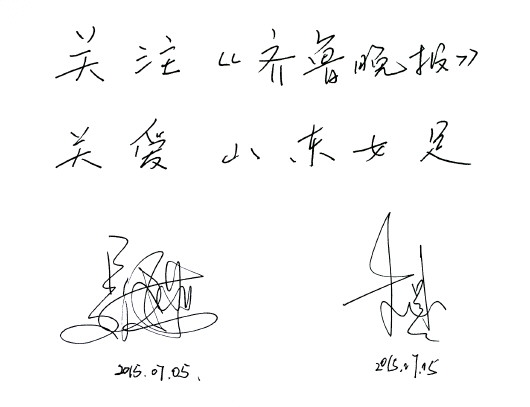 关注《齐鲁晚报》
关爱山东女足
2015.07.05.
2015.07.15